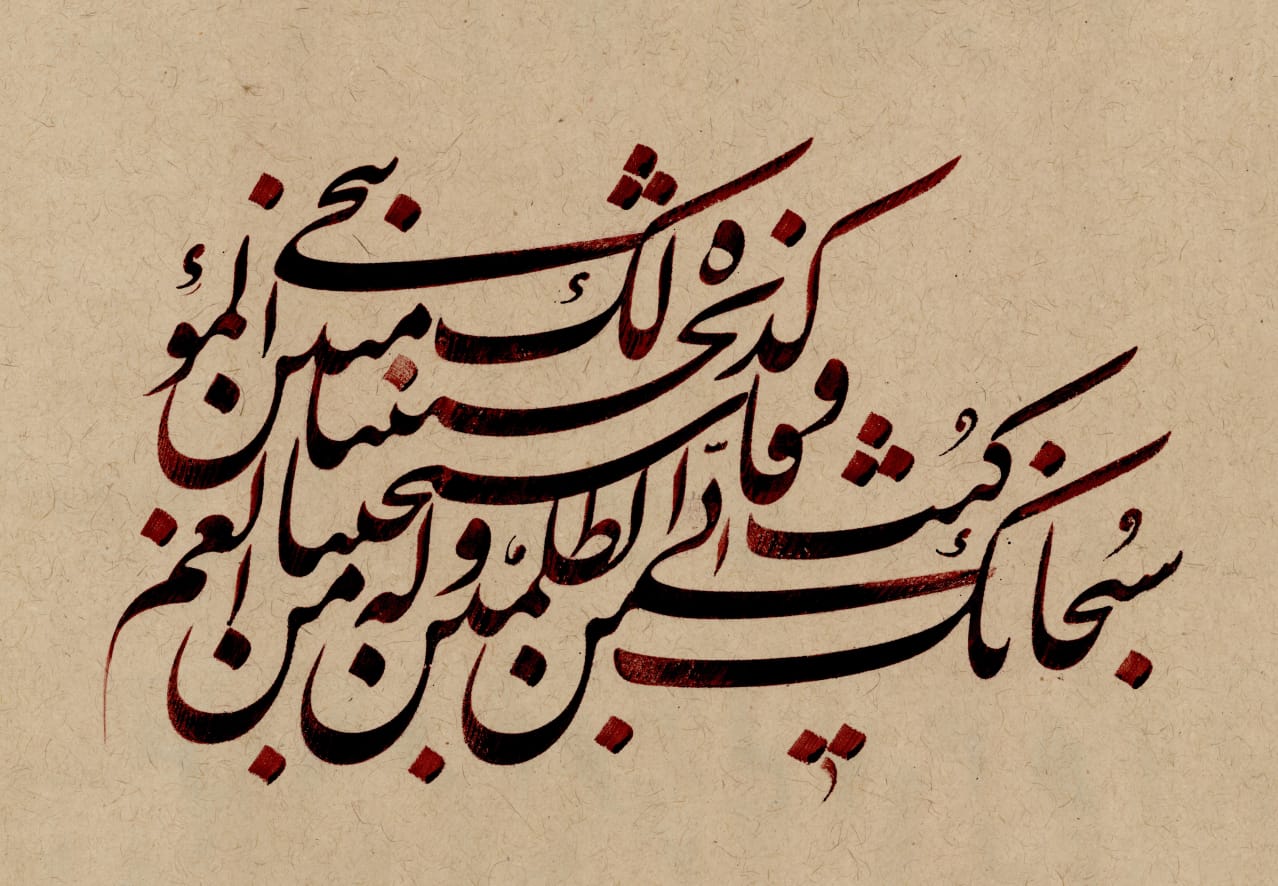 سُبحانك إنّي كُنتُ من الظلمين فاستجبنا له ونجيناه من الغم وكذلك ننجي المؤمنين